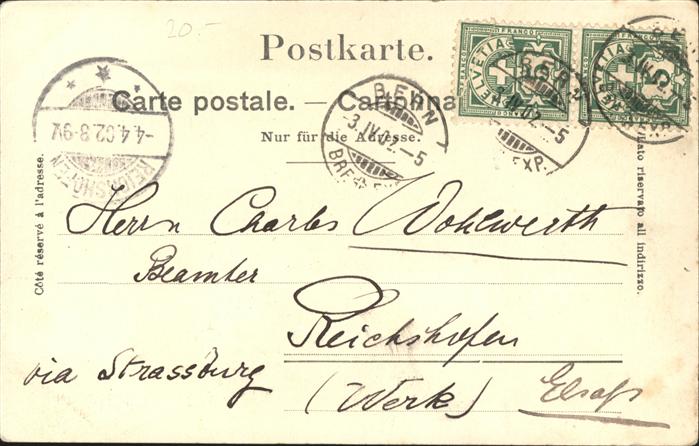 20.-
Postkarte.
Carte postale. — Cartolina
Nur für die Adresse.
Côté réservé à l'adresse.
Lato riservato all indirizzo.
FRANCO
HELVETIA
5
FRANCO
HELVETIA
BERN
-3.IV.02.-5
BRF. EXP.
BERN
-3.IV.02.-5
EXP.
REICHSHOFEN
-4.4.02.8-9V.
Herrn Charles Wohlwerth
Beamter
Reichshofen
via Strassburg (Werk) Elsass